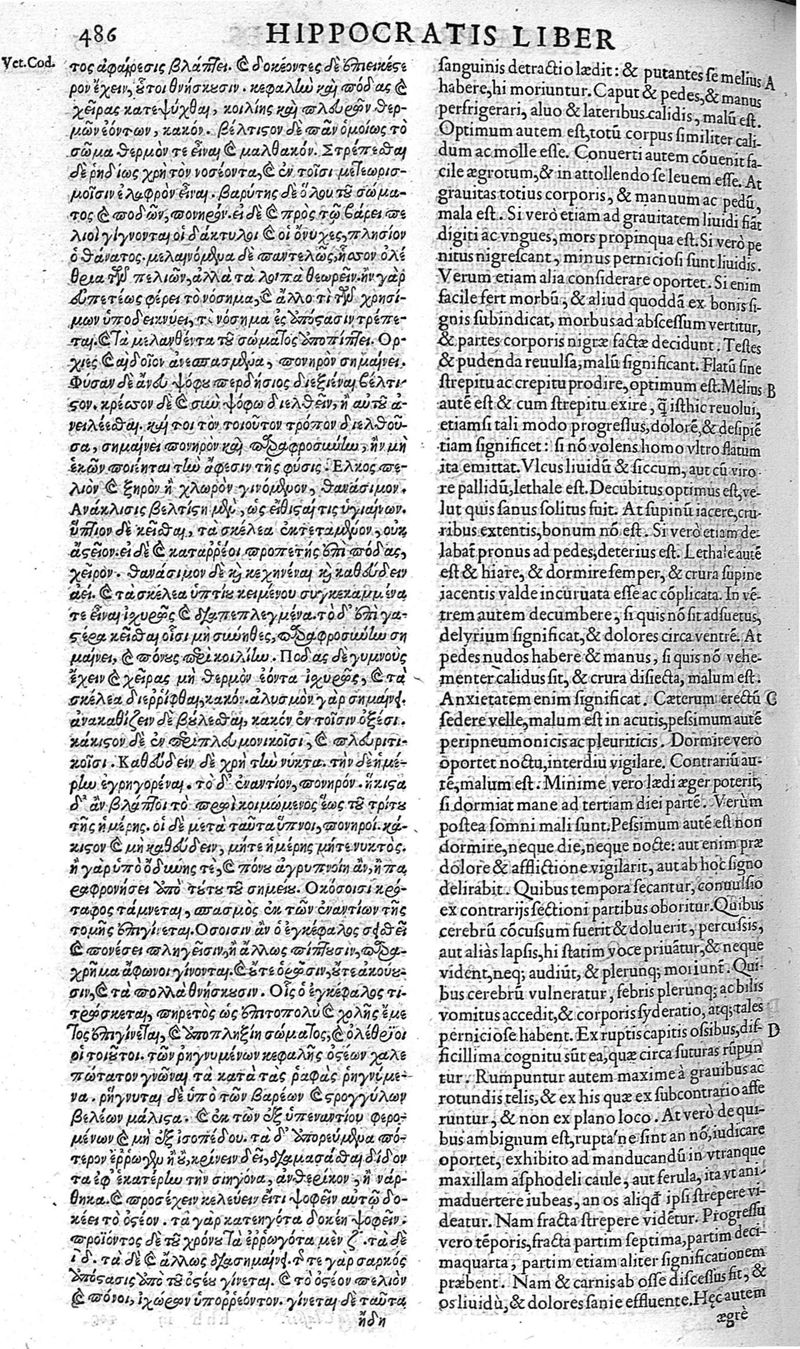 486
HIPPOCRATIS LIBER
Vet. Cod.
τος ἀφαίρεσις βλάπτει. καὶ δοκέοντες δὲ ἐπιεικέστε
ρον ἔχειν, οὗτοι θνήσκουσιν. κεφαλὴν καὶ πόδας καὶ
χεῖρας κατεψύχθαι, κοιλίης καὶ πλευρῶν θερ-
μῶν ἐόντων, κακόν. βέλτιστον δὲ πᾶν ὁμοίως τὸ
σῶμα θερμόν τε εἶναι καὶ μαλθακόν. Στρέφεσθαι
δὲ ῥηϊδίως χρὴ τὸν νοσέοντα, καὶ ἐν τοῖσι μετεωρισ-
μοῖσιν ἐλαφρὸν εἶναι. βαρύτης δὲ ὅλου τοῦ σώμα-
τος καὶ ποδῶν, πονηρόν. εἰ δὲ καὶ πρὸς τῷ βάρει πε
λιοὶ γίγνονται οἱ δάκτυλοι καὶ οἱ ὄνυχες, πλησίον
ὁ θάνατος. μελαινόμενα δὲ παντελῶς, ἧσσον ὀλέ-
θρια τῶν πελιῶν, ἀλλὰ τὰ λοιπὰ θεωρεῖν. ἢν γὰρ
εὐπετέως φέρει τὸ νόσημα, καὶ ἄλλο τὶ τῶν χρησί-
μων ὑποδεικνύει, τὸ νόσημα ἐς ἀπόστασιν τρέπε-
ται, καὶ τὰ μελανθέντα τοῦ σώματος ἀποπίπτει. Ορ-
χιες καὶ αἰδοῖον ἀνεσπασμένα, πονηρὸν σημαίνει.
Φύσαν δὲ ἄνευ ψόφου περδήσιος διεξιέναι βέλτι-
στον. κρέσσον δὲ καὶ σὺν ψόφῳ διελθεῖν, ἢ αὐτοῦ ἀ-
νειλέεσθαι. καὶ τοι τὸν τοιοῦτον τρόπον διελθοῦ-
σα, σημαίνει πονηρὸν καὶ παραφροσύνην, ἢν μὴ
ἑκὼν ποιῆται τὴν ἄφεσιν τῆς φύσης. Ελκος πε-
λιὸν καὶ ξηρὸν ἢ χλωρὸν γινόμενον, θανάσιμον.
Ανάκλισις βελτίστη μὲν, ὡς εἴθισται τις ὑγιαίνων.
ὕπτιον δὲ κεῖσθαι, τὰ σκέλεα ἐκτεταμένον, οὐκ
ἀστεῖον. εἰ δὲ καὶ καταρρέοι προπετὴς ἐπὶ πόδας,
χεῖρον. θανάσιμον δὲ καὶ κεχηνέναι καὶ καθεύδειν
ἀεί. καὶ τὰ σκέλεα ὑπτίου κειμένου συγκεκαμμένα
τε εἶναι ἰσχυρῶς καὶ διαπεπλεγμένα. τὸ δ' ἐπὶ γα-
στέρα κεῖσθαι οἷσι μὴ σύνηθες, παραφροσύνην ση
μαίνει, καὶ πόνους περὶ κοιλίην. Ποδας δὲ γυμνοὺς
ἔχειν καὶ χεῖρας μὴ θερμὸν ἐόντα ἰσχυρῶς, καὶ τὰ
σκέλεα διερρίφθαι, κακόν. ἀλυσμὸν γὰρ σημαίνει.
ἀνακαθίζειν δὲ βούλεσθαι, κακὸν ἐν τοῖσιν ὀξέσι.
κάκιστον δὲ ἐν περιπλευμονικοῖσι, καὶ πλευριτι-
κοῖσι. Καθεύδειν δὲ χρὴ τὴν νύκτα. τὴν δὲ ἡμέ-
ρην ἐγρηγορέναι. τὸ δ' ἐναντίον, πονηρόν. ἥκιστα
δ' ἂν βλάπτοι τὸ πρωῒ κοιμώμενος ἕως τοῦ τρίτου
τῆς ἡμέρης. οἱ δὲ μετὰ ταῦτα ὕπνοι, πονηροί. κά-
κιστον καὶ μὴ καθεύδειν, μήτε ἡμέρης μήτε νυκτός.
ἢ γὰρ ὑπὸ ὀδύνης τε, καὶ πόνου ἀγρυπνοίη ἂν, ἢ πα
ραφρονήσει ἀπὸ τούτου τοῦ σημείου. Οκόσοισι κρό-
ταφος τάμνεται, σπασμὸς ἐκ τῶν ἐναντίων τῆς
τομῆς ἐπιγίνεται. Οσοισιν ἂν ὁ ἐγκέφαλος σεισθῇ
καὶ πονέσει πληγεῖσιν, ἢ ἄλλως πίπτουσιν, παρα-
χρῆμα ἄφωνοι γίνονται. καὶ οὔτε ὁρῶσιν, οὔτε ἀκούου-
σιν, καὶ τὰ πολλὰ θνήσκουσιν. Οἷς ὁ ἐγκέφαλος τι-
τρώσκεται, πυρετὸς ὡς ἐπιτοπολὺ καὶ χολῆς ἔμε
τος ἐπιγίνεται, καὶ ἀποπληξίη σώματος, καὶ ὀλέθριοι
οἱ τοιοῦτοι. τῶν ῥηγνυμένων κεφαλῆς ὀστέων χαλε
πώτατον γνῶναι τὰ κατὰ τὰς ῥαφὰς ῥηγνύμε-
να. ῥήγνυται δὲ ὑπὸ τῶν βαρέων καὶ στρογγύλων
βελέων μάλιστα. καὶ ἐκ τῶν ἐξ ὑπεναντίου φερο-
μένων καὶ μὴ ἐξ ἰσοπέδου. τὰ δ' ἀπορεύμενα πό-
τερον ἔρρωγεν ἢ οὒ, κρίνειν δεῖ, διαμασᾶσθαι διδόν
τα ἐφ' ἑκατέρην τὴν σιηγόνα, ἀνθέρικον, ἢ νάρ-
θηκα. καὶ προσέχειν κελεύειν εἴ τι ψοφεῖν αὐτῷ δο-
κέει τὸ ὀστέον. τὰ γὰρ κατεηγότα δοκέη ψοφεῖν.
προϊόντος δὲ τοῦ χρόνου τὰ ἐρρωγότα μὲν ζ´. τὰ δὲ
ιδ´. τὰ δὲ καὶ ἄλλως διασημαίνει. τῆς τε γὰρ σαρκὸς
ἀπόστασις ἀπὸ τοῦ ὀστέου γίνεται. καὶ τὸ ὀστέον πελιὸν
καὶ πόνοι, ἰχώρων ὑπορρεόντον. γίνεται δὲ ταῦτα
ἤδη
sanguinis detractio lædit: & putantes se melius A
habere, hi moriuntur. Caput & pedes, & manus
perfrigerari, aluo & lateribus calidis, malū est.
Optimum autem est, totū corpus similiter cali-
dum ac molle esse. Conuerti autem cōuenit fa-
cile ægrotum, & in attollendo se leuem esse. At
grauitas totius corporis, & manuum ac pedū,
mala est. Si verò etiam ad grauitatem liuidi fiāt
digiti ac vngues, mors propinqua est. Si verò pe
nitus nigrescant, minus perniciosi sunt liuidis.
Verum etiam alia considerare oportet. Si enim
facile fert morbū, & aliud quoddā ex bonis si-
gnis subindicat, morbus ad abscessum vertitur,
& partes corporis nigræ factæ decidunt. Testes
& pudenda reuulsa, malū significant. Flatū sine
strepitu ac crepitu prodire, optimum est. Melius B
autē est & cum strepitu exire, q̄ isthic reuolui,
etiamsi tali modo progressus, dolorē, & desipiē
tiam significet: si nō volens homo vltro flatum
ita emittat. Vlcus liuidū & siccum, aut cū viro-
re pallidū, lethale est. Decubitus optimus est, ve-
lut quis sanus solitus fuit. At supinū iacere, cru-
ribus extentis, bonum nō est. Si verò etiam de-
labat́ pronus ad pedes, deterius est. Lethale autē
est & hiare, & dormire semper, & crura supine
iacentis valde incuruata esse ac cōplicata. In vē-
trem autem decumbere, si quis nō sit adsuetus,
delyrium significat, & dolores circa ventrē. At
pedes nudos habere & manus, si quis non vehe-
menter calidus sit, & crura disiecta, malum est.
Anxietatem enim significat. Cæterum erectū C
sedere velle, malum est in acutis, pessimum autē
peripneumonicis ac pleuriticis. Dormire verò
oportet noctu, interdiu vigilare. Contrariū au-
tē, malum est. Minime vero lædi æger poterit,
si dormiat mane ad tertiam diei partē. Verùm
postea somni mali sunt. Pessimum autē est non
dormire, neque die, neque nocte: aut enim præ
dolore & afflictione vigilarit, aut ab hoc signo
delirabit. Quibus tempora secantur, conuulsio
ex contrarijs sectioni partibus oboritur. Quibus
cerebrū cōcussum fuerit & doluerit, percussis,
aut aliàs lapsis, hi statim voce priuātur, & neque
vident, neq; audiūt, & plerunq; moriunt́. Qui-
bus cerebrū vulneratur, febris plerunq; ac bilis
vomitus accedit, & corporis syderatio, atq; tales
perniciose habent. Ex ruptis capitis ossibus, dif- D
ficillima cognitu sūt ea, quæ circa suturas rūpun
tur. Rumpuntur autem maxime à grauibus ac
rotundis telis, & ex his quæ ex subcontrario affe
runtur, & non ex plano loco. At verò de qui-
bus ambignum est, rupta'ne sint an nō, iudicare
oportet, exhibito ad manducandū in vtranque
maxillam asphodeli caule, aut ferula, ita vt ani-
maduertere iubeas, an os aliqd̄ ipsi strepere vi-
deatur. Nam fracta strepere vidētur. Progressu
vero tēporis, fracta partim septima, partim deci-
maquarta, partim etiam aliter significationem
præbent. Nam & carnis ab osse discessus fit, &
os liuidū, & dolores sanie effluente. Hęc autem
ægrè